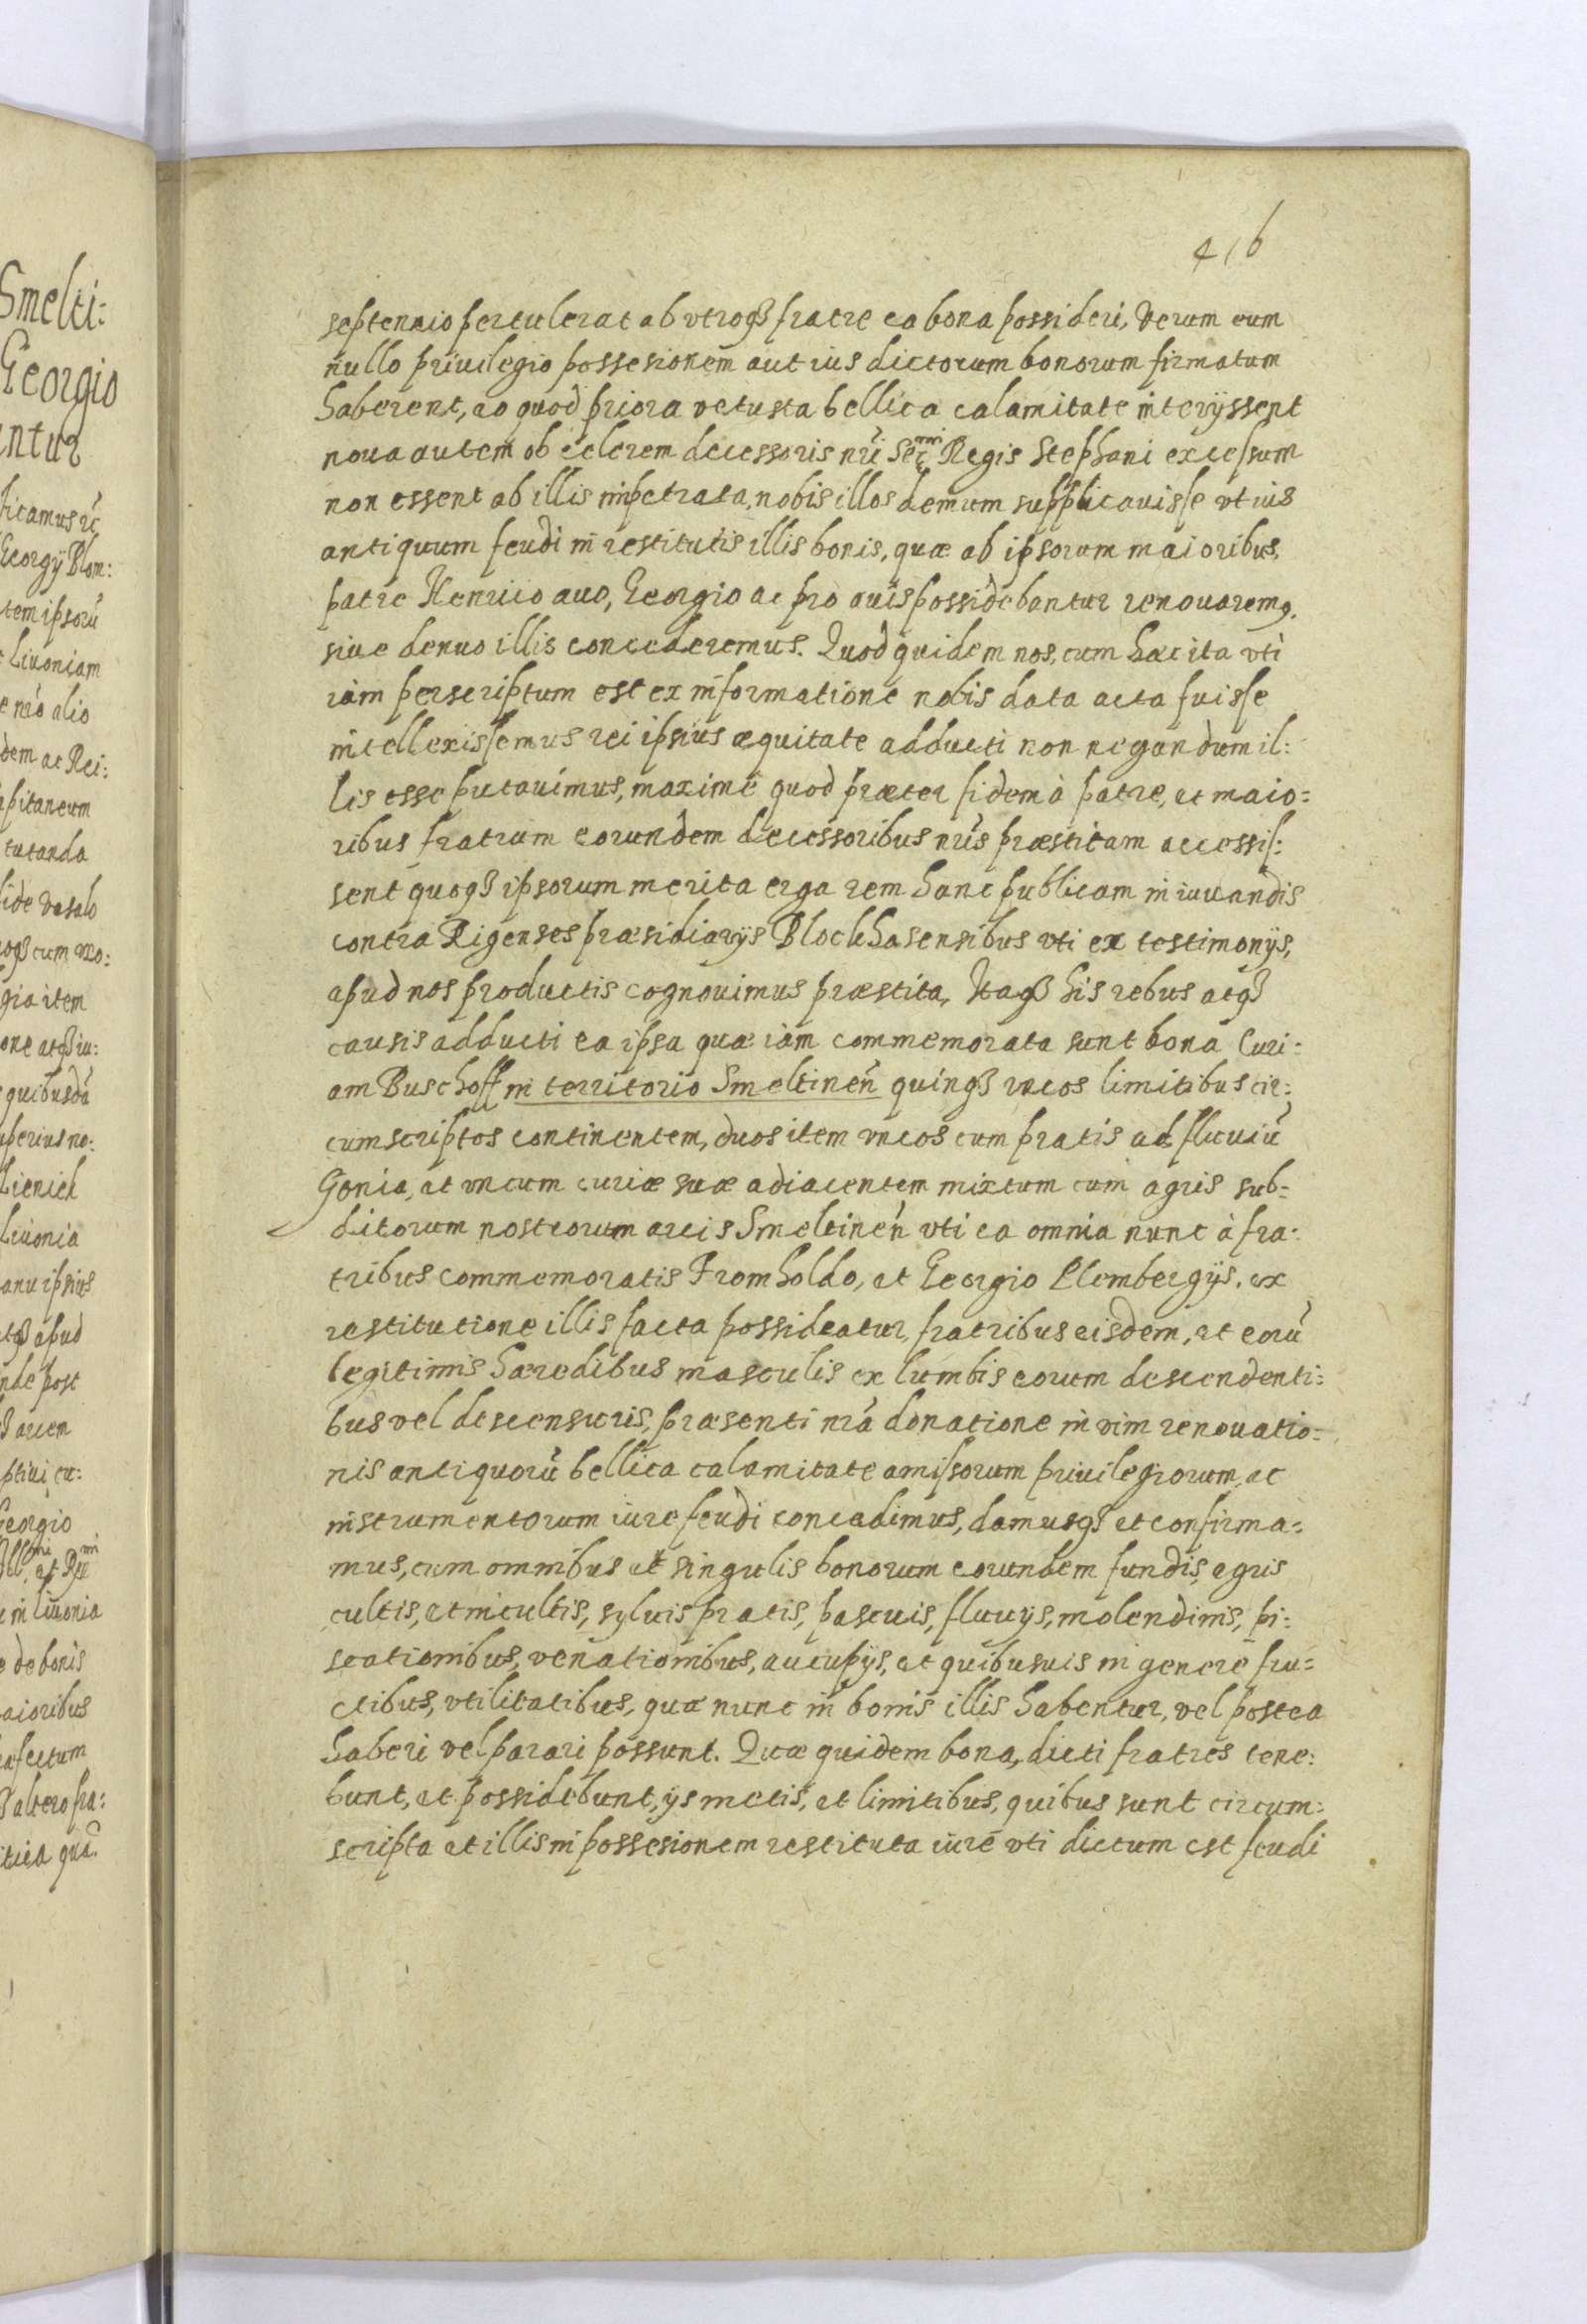 416
septennio pertulerat ab vtroqȝ fratre ea bona possideri, verum cum
nullo priuilegio possesionem aut ius dictorum bonorum firmatum
haberent, eo quod priora vetusta bellica calamitate interijssent
noua autem ob celerem decessoris nr̃i Ser̃mi Regis Stephani excessum
non essent ab illis impetrata, nobis illos demum supplicauisse vt ius
antiquum feudi in restitutis illis bonis, quæ ab ipsorum maioribus,
patre Henrico auo, Georgio ac pro auis possidebantur renouaremꝰ,
siue denuo illis concederemus. Quod quidem nos, cum hæc ita vti
iam perscriptum est ex informatione nobis data acta fuisse
intellexissemus rei ipsius æquitate adducti non negandum il:
lis esse putauimus, maxime quod præter fidem à patre, et maio:
ribus fratrum eorundem decessoribus nr̃is præstitam accessis:
sent quoqȝ ipsorum merita erga rem hanc publicam in iuuandis
contra Rigenses præsidiarijs Blockhasensibus vti ex testimonijs,
apud nos productis cognouimus præstita, Itaqȝ his rebus atqȝ
causis adducti ea ipsa quæ iam commemorata sunt bona Curi:
am Buschoff in territorio Smeltineñ quinqȝ vncos limitibus cir:
cumscriptos continentem, duos item vncos cum pratis ad fluuiũ
Gonia, et vncum curiæ suæ adiacentem mixtum cum agris sub:
ditorum nostrorum arcis Smeltineñ vti ea omnia nunc à fra:
tribus commemoratis Fromholdo, et Georgio Plembergijs, ex
restitutione illis facta possideatur, fratribus eisdem, et eorũ
legitimis hæredibus masculis ex lumbis eorum descendenti:
bus vel descensuris, præsenti nr̃a donatione in vim renouatio:
nis antiquorũ bellica calamitate amissorum priuilegiorum, ac
instrumentorum iure feudi concedimus, damusqȝ et confirma:
mus, cum omnibus et singulis bonorum eorundem fundis, agris
cultis, et incultis, syluis pratis, pascuis, fluuijs, molendinis, pi:
scationibus, venationibus, aucupijs, et quibusuis in genere fru:
ctibus, vtilitatibus, quæ nunc in bonis illis habentur, vel postea
haberi vel parari possunt. Quæ quidem bona, dicti fratres tene:
bunt, et possidebunt, ijs metis, et limitibus, quibus sunt circum:
scripta et illis in possesionem restituta iure vti dictum est feudi